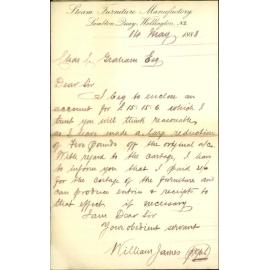 Steam Furniture Manufactory
Lambton Quay, Wellington, NZ
14 May 1888
Chas J. Graham Esq
Dear Sir
I beg to enclose an
account for £15.15.6 which I
trust you will think reasonable
as I have made a large reduction
of Five pounds off the original a/c
With regard to the cartage, I have
to inform you that I paid
for the cartage of the furniture and
can produce entries & receipts to
that effect if necessary
I am Dear Sir
Your obedient servant
William James